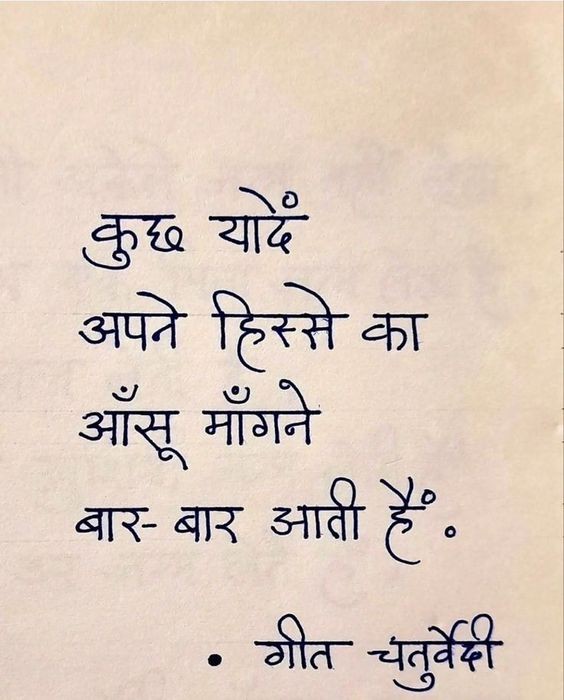 कुछ यादें
अपने हिस्से का
आँसू माँगने
बार-बार आती हैं.
• गीत चतुर्वेदी